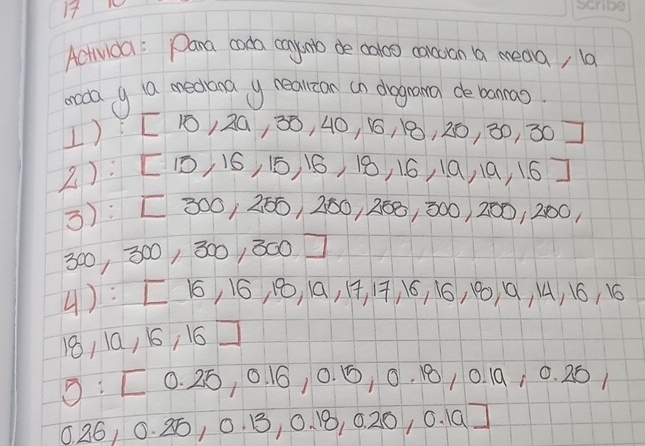 17 10
scribe
Activida: Para cada conjunto de datos calculan la media, la
moda y la mediana y realizan un diagrama de barras.
1): [ 15, 29, 35, 40, 16, 18, 20, 30, 30 ]
2): [ 15, 16, 15, 16, 18, 16, 19, 19, 16 ]
3): [ 300, 255, 250, 258, 300, 200, 200,
300, 300, 300, 300 ]
4): [ 16, 16, 18, 19, 17, 17, 16, 16, 18, 19, 14, 16, 16
18, 19, 16, 16 ]
5: [ 0.25, 0.16, 0.15, 0.18, 0.19, 0.25,
0.26, 0.25, 0.13, 0.18, 0.20, 0.19 ]